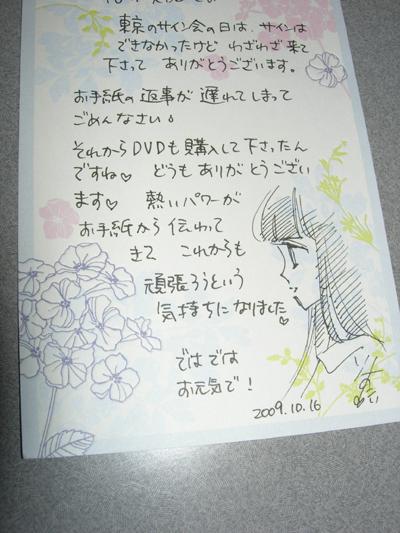 東京のサイン会の日は、サインは
できなかったけど わざわざ来て
下さって ありがとうございます。
お手紙の返事が 遅れてしまって
ごめんなさい。
それからDVDも購入して下さったん
ですね♡ どうも ありがとうござい
ます♡ 熱いパワーが
お手紙から 伝わって
きて これからも
頑張ろうという
気持ちになりました♡
ではでは
お元気で!
2009.10.16